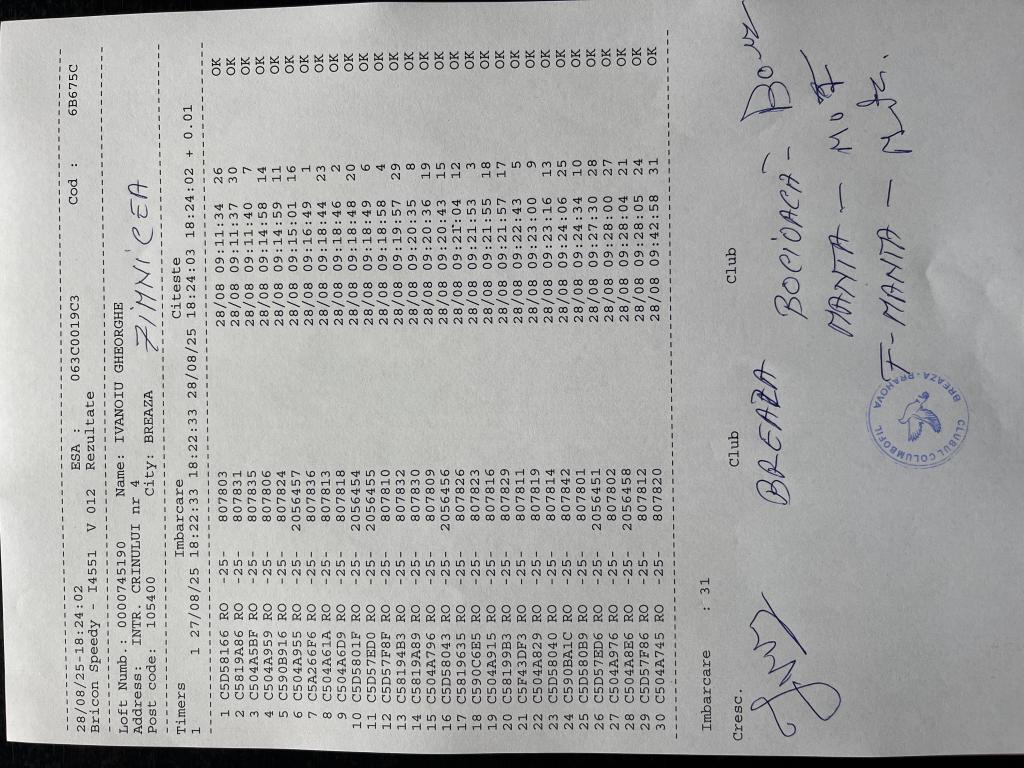 28/08/25-18:24:02 ESA : 063C0019C3 Cod : 6B675C
Bricon Speedy - I4551 V 012 Rezultate
Loft Numb.: 0000745190 Name: IVANOIU GHEORGHE
Address: INTR. CRINULUI nr 4
Post code: 105400 City: BREAZA ZIMNICEA
Timers Imbarcare Citeste
1 27/08/25 18:22:33 18:22:33 28/08/25 18:24:03 18:24:02 + 0.01
1 C5D58166 RO -25- 807803 28/08 09:11:34 26 OK
2 C5819A86 RO -25- 807831 28/08 09:11:37 30 OK
3 C504A5BF RO -25- 807835 28/08 09:11:40 7 OK
4 C504A959 RO -25- 807806 28/08 09:14:58 14 OK
5 C590B916 RO -25- 807824 28/08 09:14:59 11 OK
6 C504A955 RO -25- 2056457 28/08 09:15:01 16 OK
7 C5A266F6 RO -25- 807836 28/08 09:16:49 1 OK
8 C504A61A RO -25- 807813 28/08 09:18:44 23 OK
9 C504A6D9 RO -25- 807818 28/08 09:18:46 2 OK
10 C5D5801F RO -25- 2056454 28/08 09:18:48 20 OK
11 C5D57ED0 RO -25- 2056455 28/08 09:18:49 6 OK
12 C5D57F8F RO -25- 807810 28/08 09:18:58 4 OK
13 C58194B3 RO -25- 807832 28/08 09:19:57 29 OK
14 C5819A89 RO -25- 807830 28/08 09:20:35 8 OK
15 C504A796 RO -25- 807809 28/08 09:20:36 19 OK
16 C5D58043 RO -25- 2056456 28/08 09:20:43 15 OK
17 C5819635 RO -25- 807826 28/08 09:21:04 12 OK
18 C590C6E5 RO -25- 807823 28/08 09:21:53 3 OK
19 C504A915 RO -25- 807816 28/08 09:21:55 18 OK
20 C58199B3 RO -25- 807829 28/08 09:21:57 17 OK
21 C5F43DF3 RO -25- 807811 28/08 09:22:43 5 OK
22 C504A829 RO -25- 807819 28/08 09:23:00 9 OK
23 C5D58040 RO -25- 807814 28/08 09:23:16 13 OK
24 C590BA1C RO -25- 807842 28/08 09:24:06 25 OK
25 C5D580B9 RO -25- 807801 28/08 09:24:34 10 OK
26 C5D57ED6 RO -25- 2056451 28/08 09:27:30 28 OK
27 C504A976 RO -25- 807802 28/08 09:28:00 27 OK
28 C504A8E6 RO -25- 2056458 28/08 09:28:04 21 OK
29 C5D57F86 RO -25- 807812 28/08 09:28:05 24 OK
30 C504A745 RO -25- 807820 28/08 09:42:58 31 OK
Imbarcare : 31
Cresc. Club Club
BREAZA BOCIOACĂ -
MANTA -
F - MANTA -
CLUBUL COLUMBOFIL BREAZA-PRAHOVA